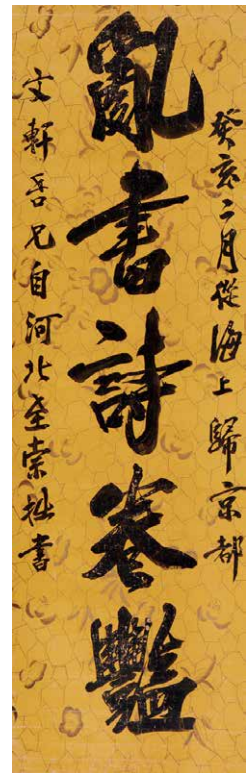 癸亥二月從海上歸京都
亂書詩卷豔
文軒吾兄自河北至索拙書